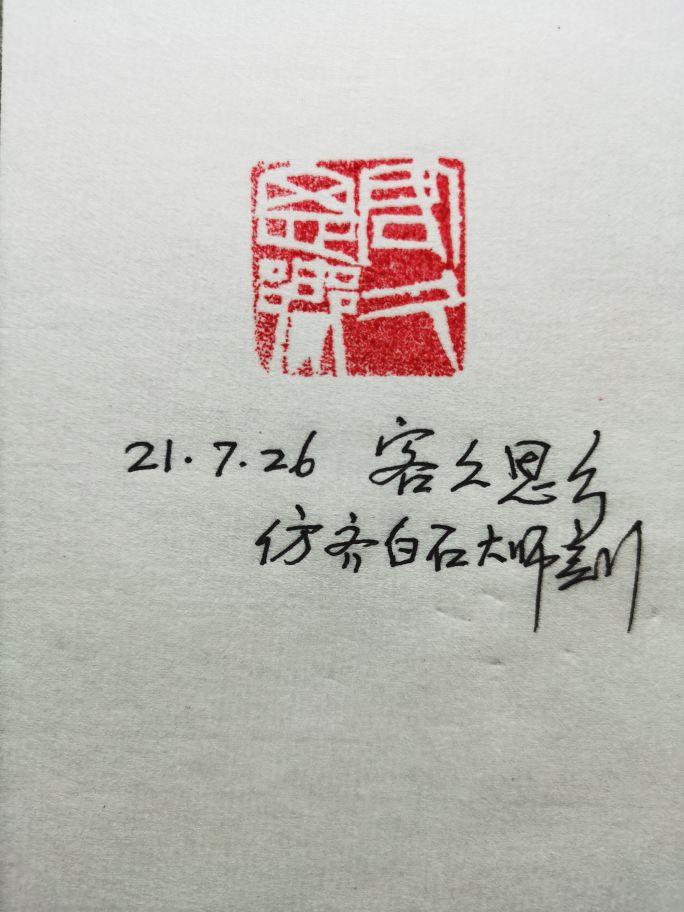 客久
思鄉
21.7.26 客久思乡
仿齐白石大师刻